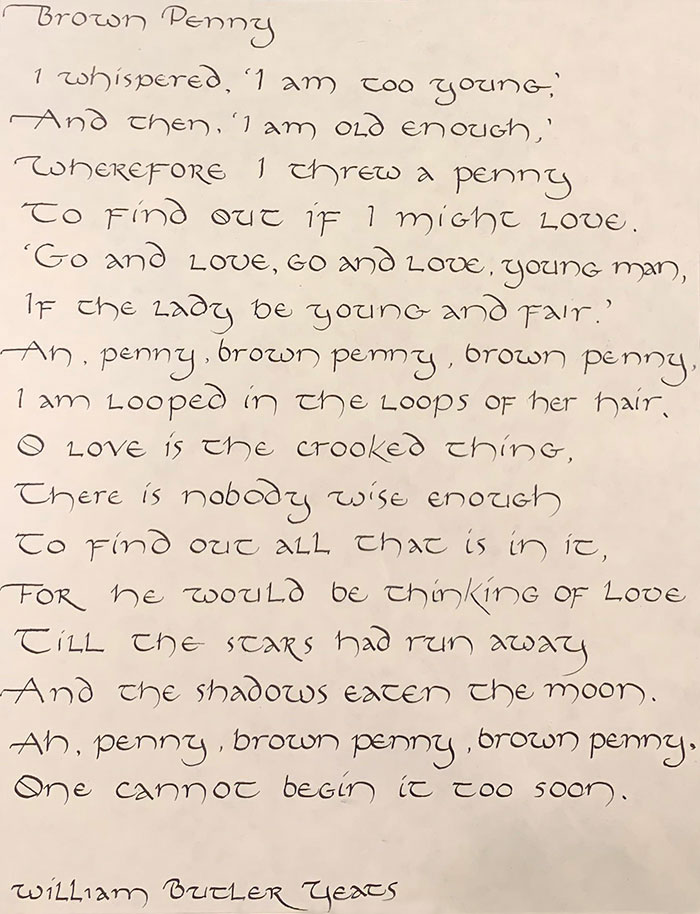 Brown Penny
I whispered, 'I am too young,'
And then, 'I am old enough,'
Wherefore I threw a penny
To find out if I might love.
'Go and love, go and love, young man,
If the lady be young and fair.'
Ah, penny, brown penny, brown penny,
I am looped in the loops of her hair.
O love is the crooked thing,
There is nobody wise enough
To find out all that is in it,
For he would be thinking of love
Till the stars had run away
And the shadows eaten the moon.
Ah, penny, brown penny, brown penny,
One cannot begin it too soon.
William Butler Yeats